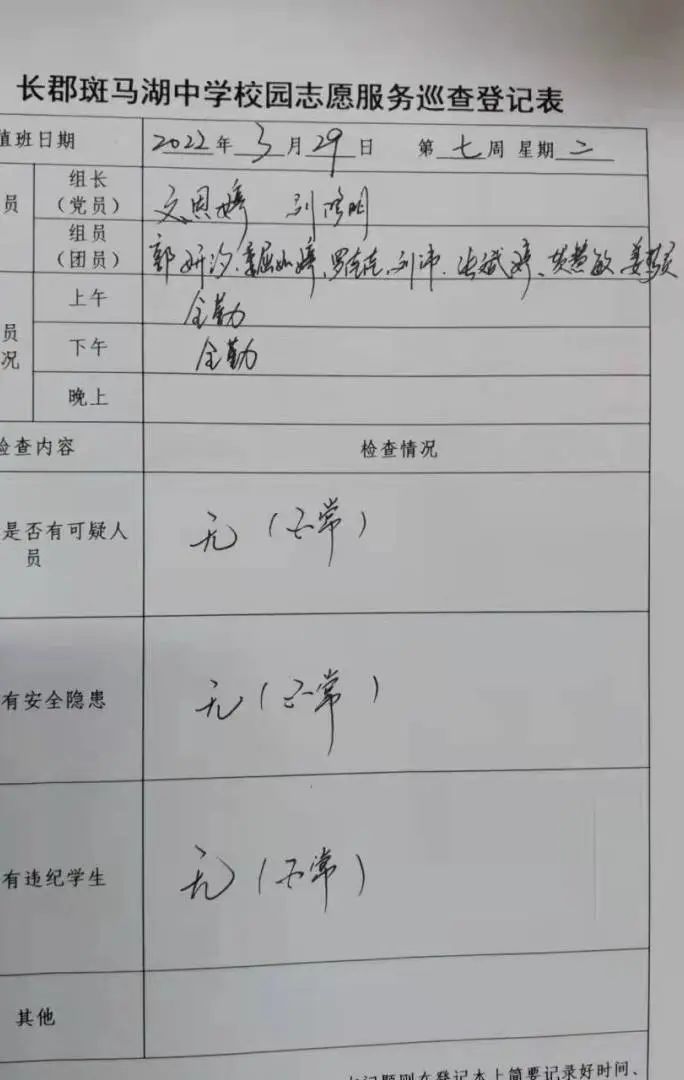 长郡斑马湖中学校园志愿服务巡查登记表
值班日期 2022年3月29日 第七周 星期二
员 组长（党员） 文恩婷
组员（团员） 郭妍汐、 刘沛、张斌婷、黄慧敏
上午 全勤
员况 下午 全勤
晚上
检查内容 检查情况
是否有可疑人员 无（正常）
有安全隐患 无（正常）
有违纪学生 无（正常）
其他
问题则在登记本上简要记录好时间、